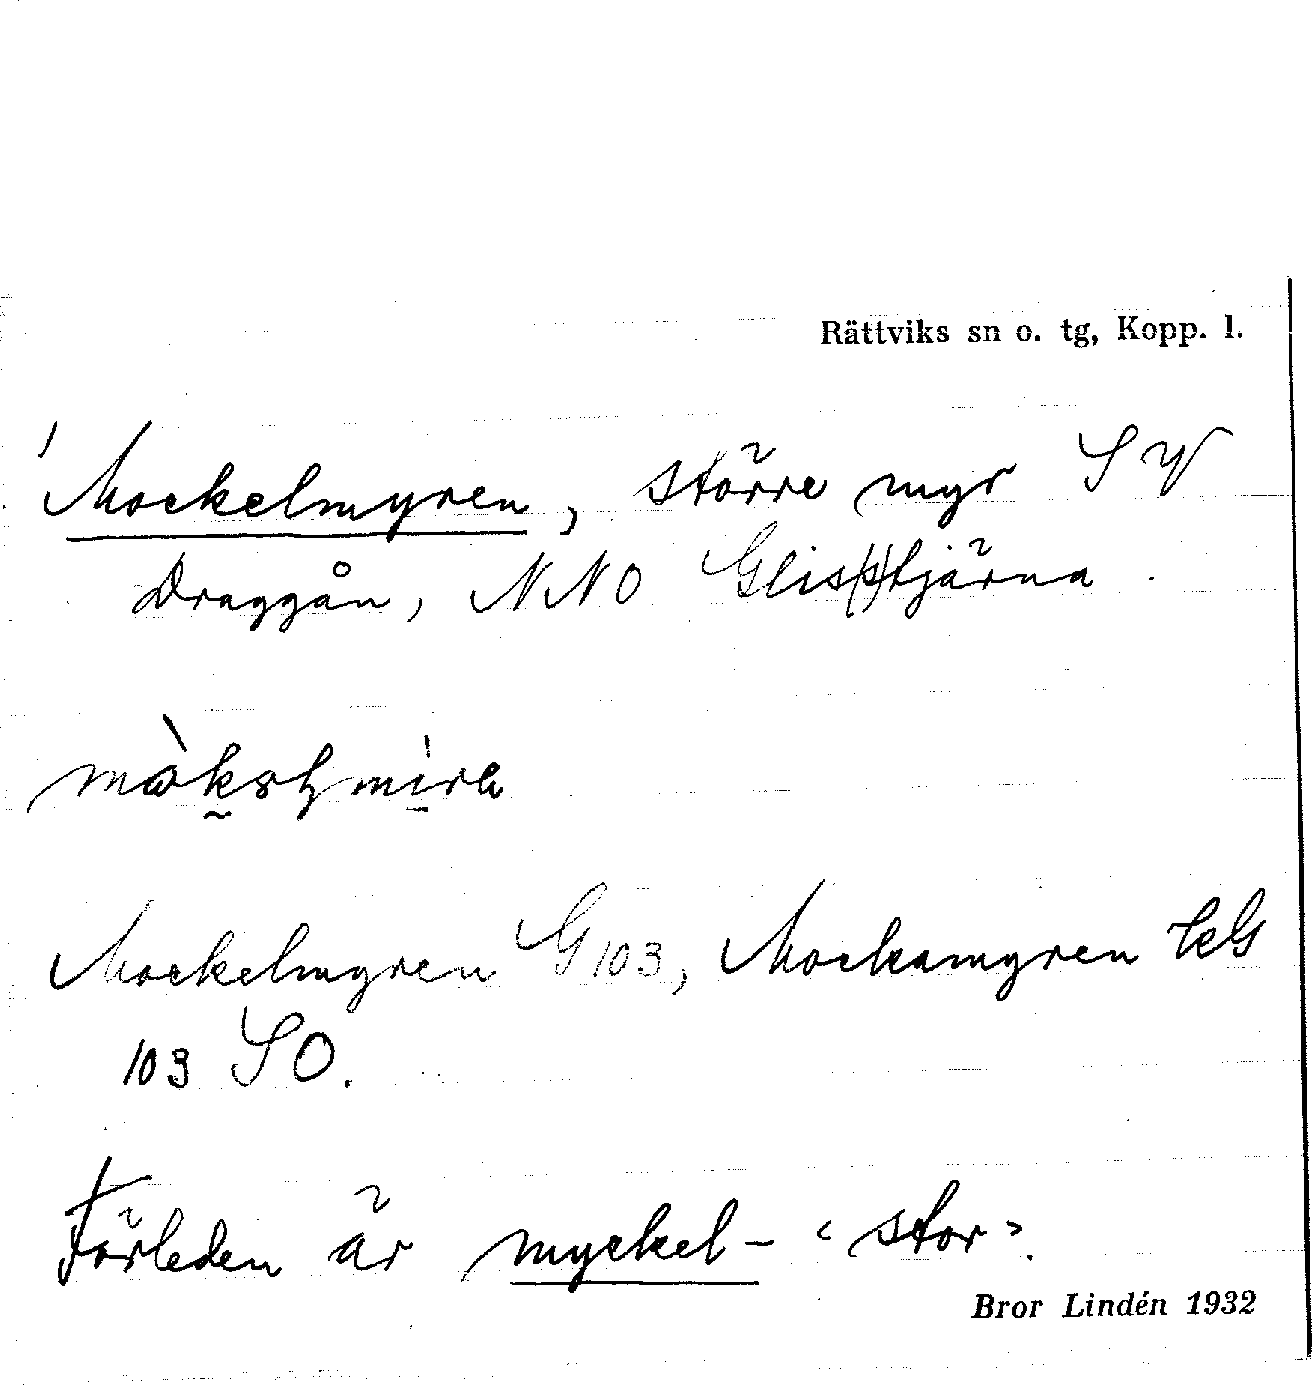 Rättviks sn o. tg, Kopp. l.
Mockelmyren, större myr SV
Draggån, NNO Glis(s)tjärna.
Mockelmyren G 103, Mockamyren kG
103 SO.
Förleden är myckel- ‹stor›.
Bror Lindén 1932